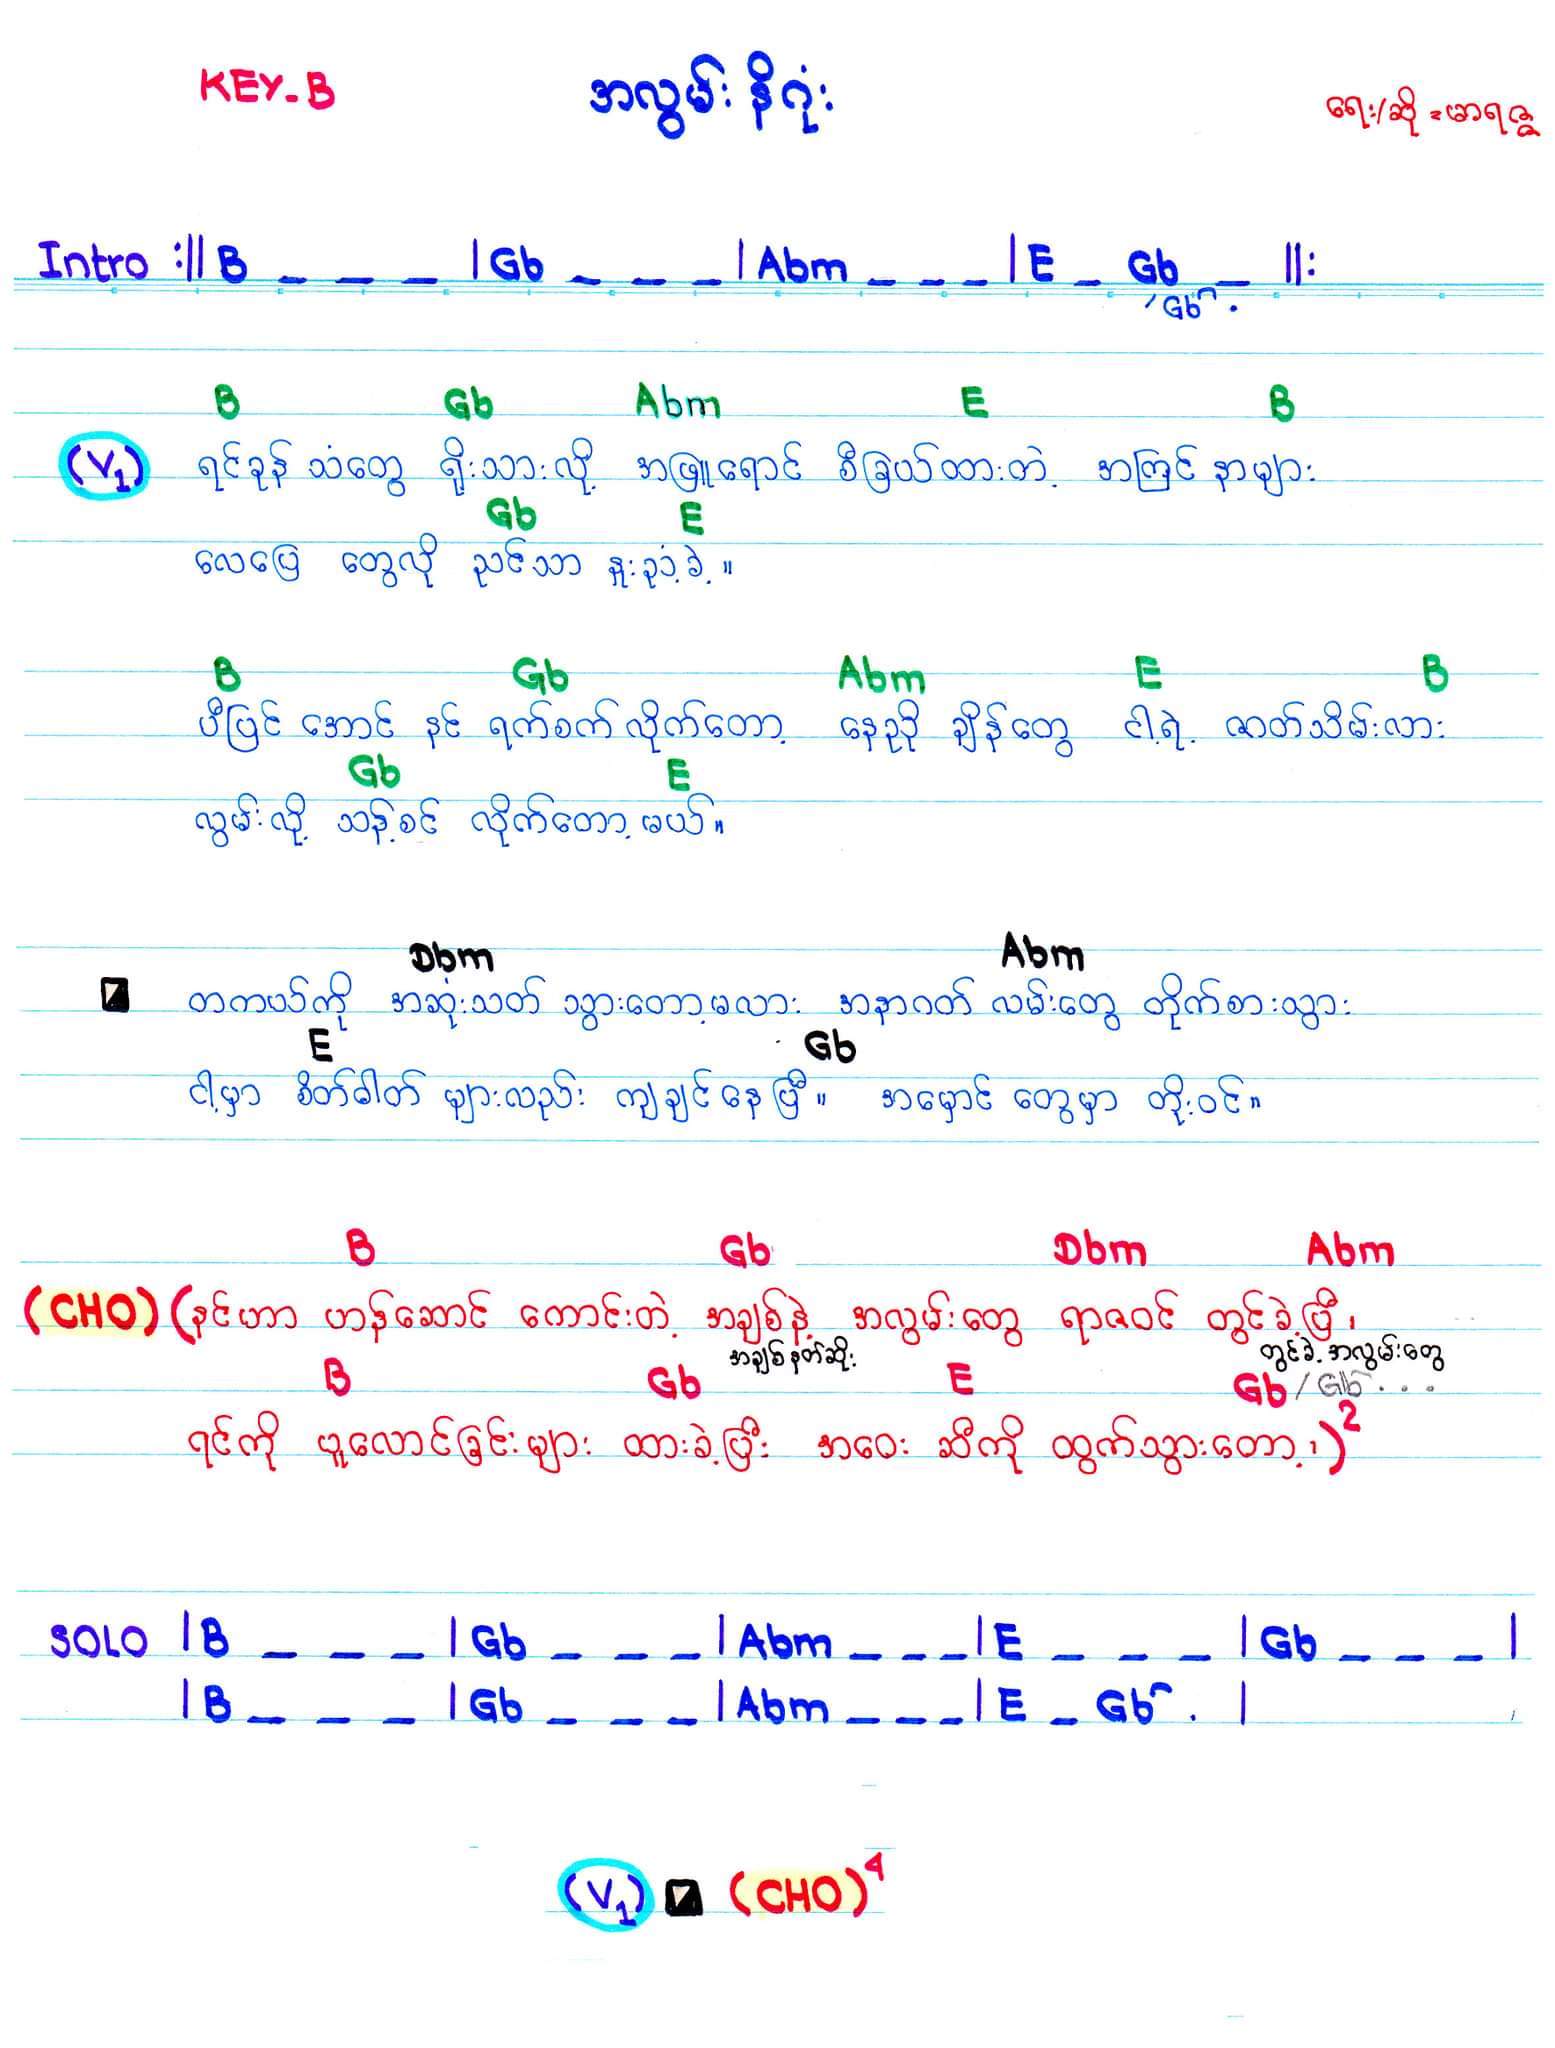 KEY-B
အလွမ်းနိဂုံး
ရေး/ဆို = မာရဇ္ဇ
Intro :|| B _ _ _ | Gb _ _ _ | Abm _ _ _ | E _ Gb _ ||:
Gb .
B Gb Abm E B
(V1) ရင်ခုန် သံတွေ ရိုးသားလို့ အဖြူရောင် စီခြယ်ထားတဲ့ အကြင် နာများ
Gb E
လေပြေ တွေလို ညင်သာ နူးညံ့ခဲ့။
B Gb Abm E B
ပီပြင် အောင် နင် ရက်စက် လိုက်တော့ နေ့ညို ချိန်တွေ ငါ့ရဲ့ ဇာတ်သိမ်းလား
Gb E
လွမ်းလို့ သန့်စင် လိုက်တော့မယ်။
Dbm Abm
တကယ်ကို အဆုံးသတ် သွားတော့မလား အနာဂတ် လမ်းတွေ တိုက်စားသွား
E Gb
ငါ့မှာ စိတ်ဓါတ် များလည်း ကျချင်နေပြီ။ အမှောင် တွေမှာ တိုးဝင်။
B Gb Dbm Abm
(CHO) (နင်ဟာ ဟန်ဆောင် ကောင်းတဲ့ အချစ်နဲ့ အလွမ်းတွေ ရာဇဝင် တွင်ခဲ့ပြီ၊
အချစ်နတ်ဆိုး တွင်ခဲ့ အလွမ်းတွေ
B Gb E Gb / Gb . . .
ရင်ကို ပူလောင်ခြင်းများ ထားခဲ့ပြီး အဝေး ဆီကို ထွက်သွားတော့၊)2
SOLO | B _ _ _ | Gb _ _ _ | Abm _ _ _ | E _ _ _ | Gb _ _ _ |
| B _ _ _ | Gb _ _ _ | Abm _ _ _ | E _ Gb . |
(V1) (CHO)4